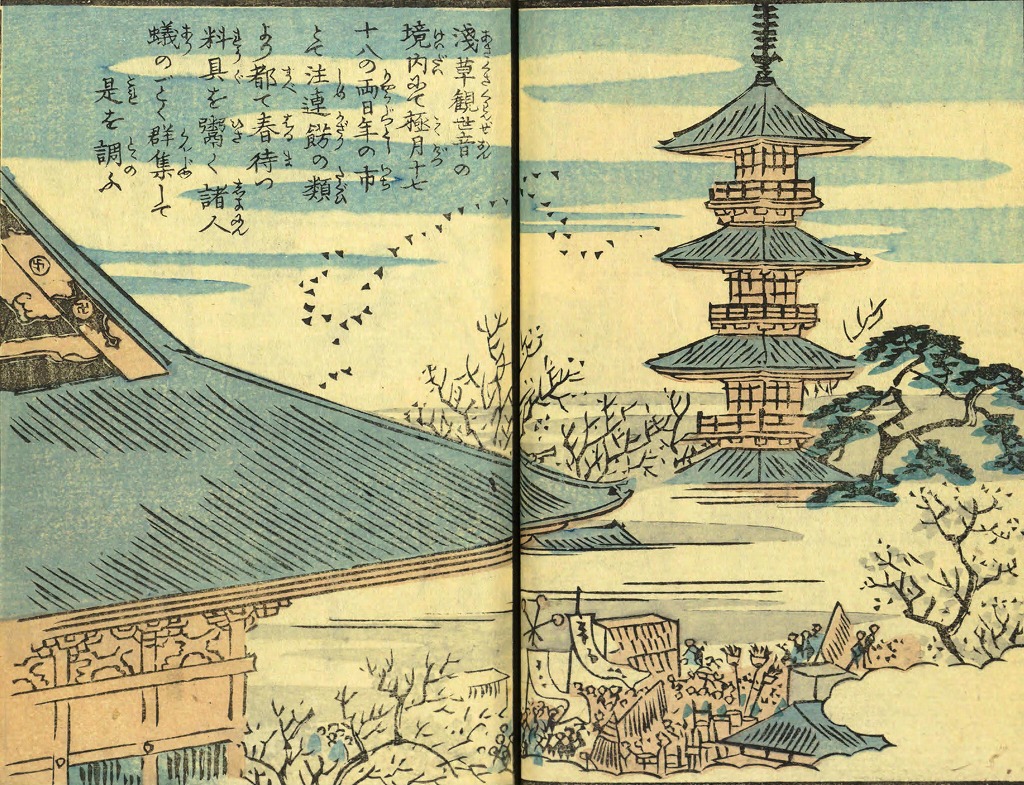 淺草観世音の
境内にて極月十七
十八の両日年の市
とて注連餝の類
より都て春待つ
料具を鬻く諸人
蟻のごとく群集して
是を調ふ